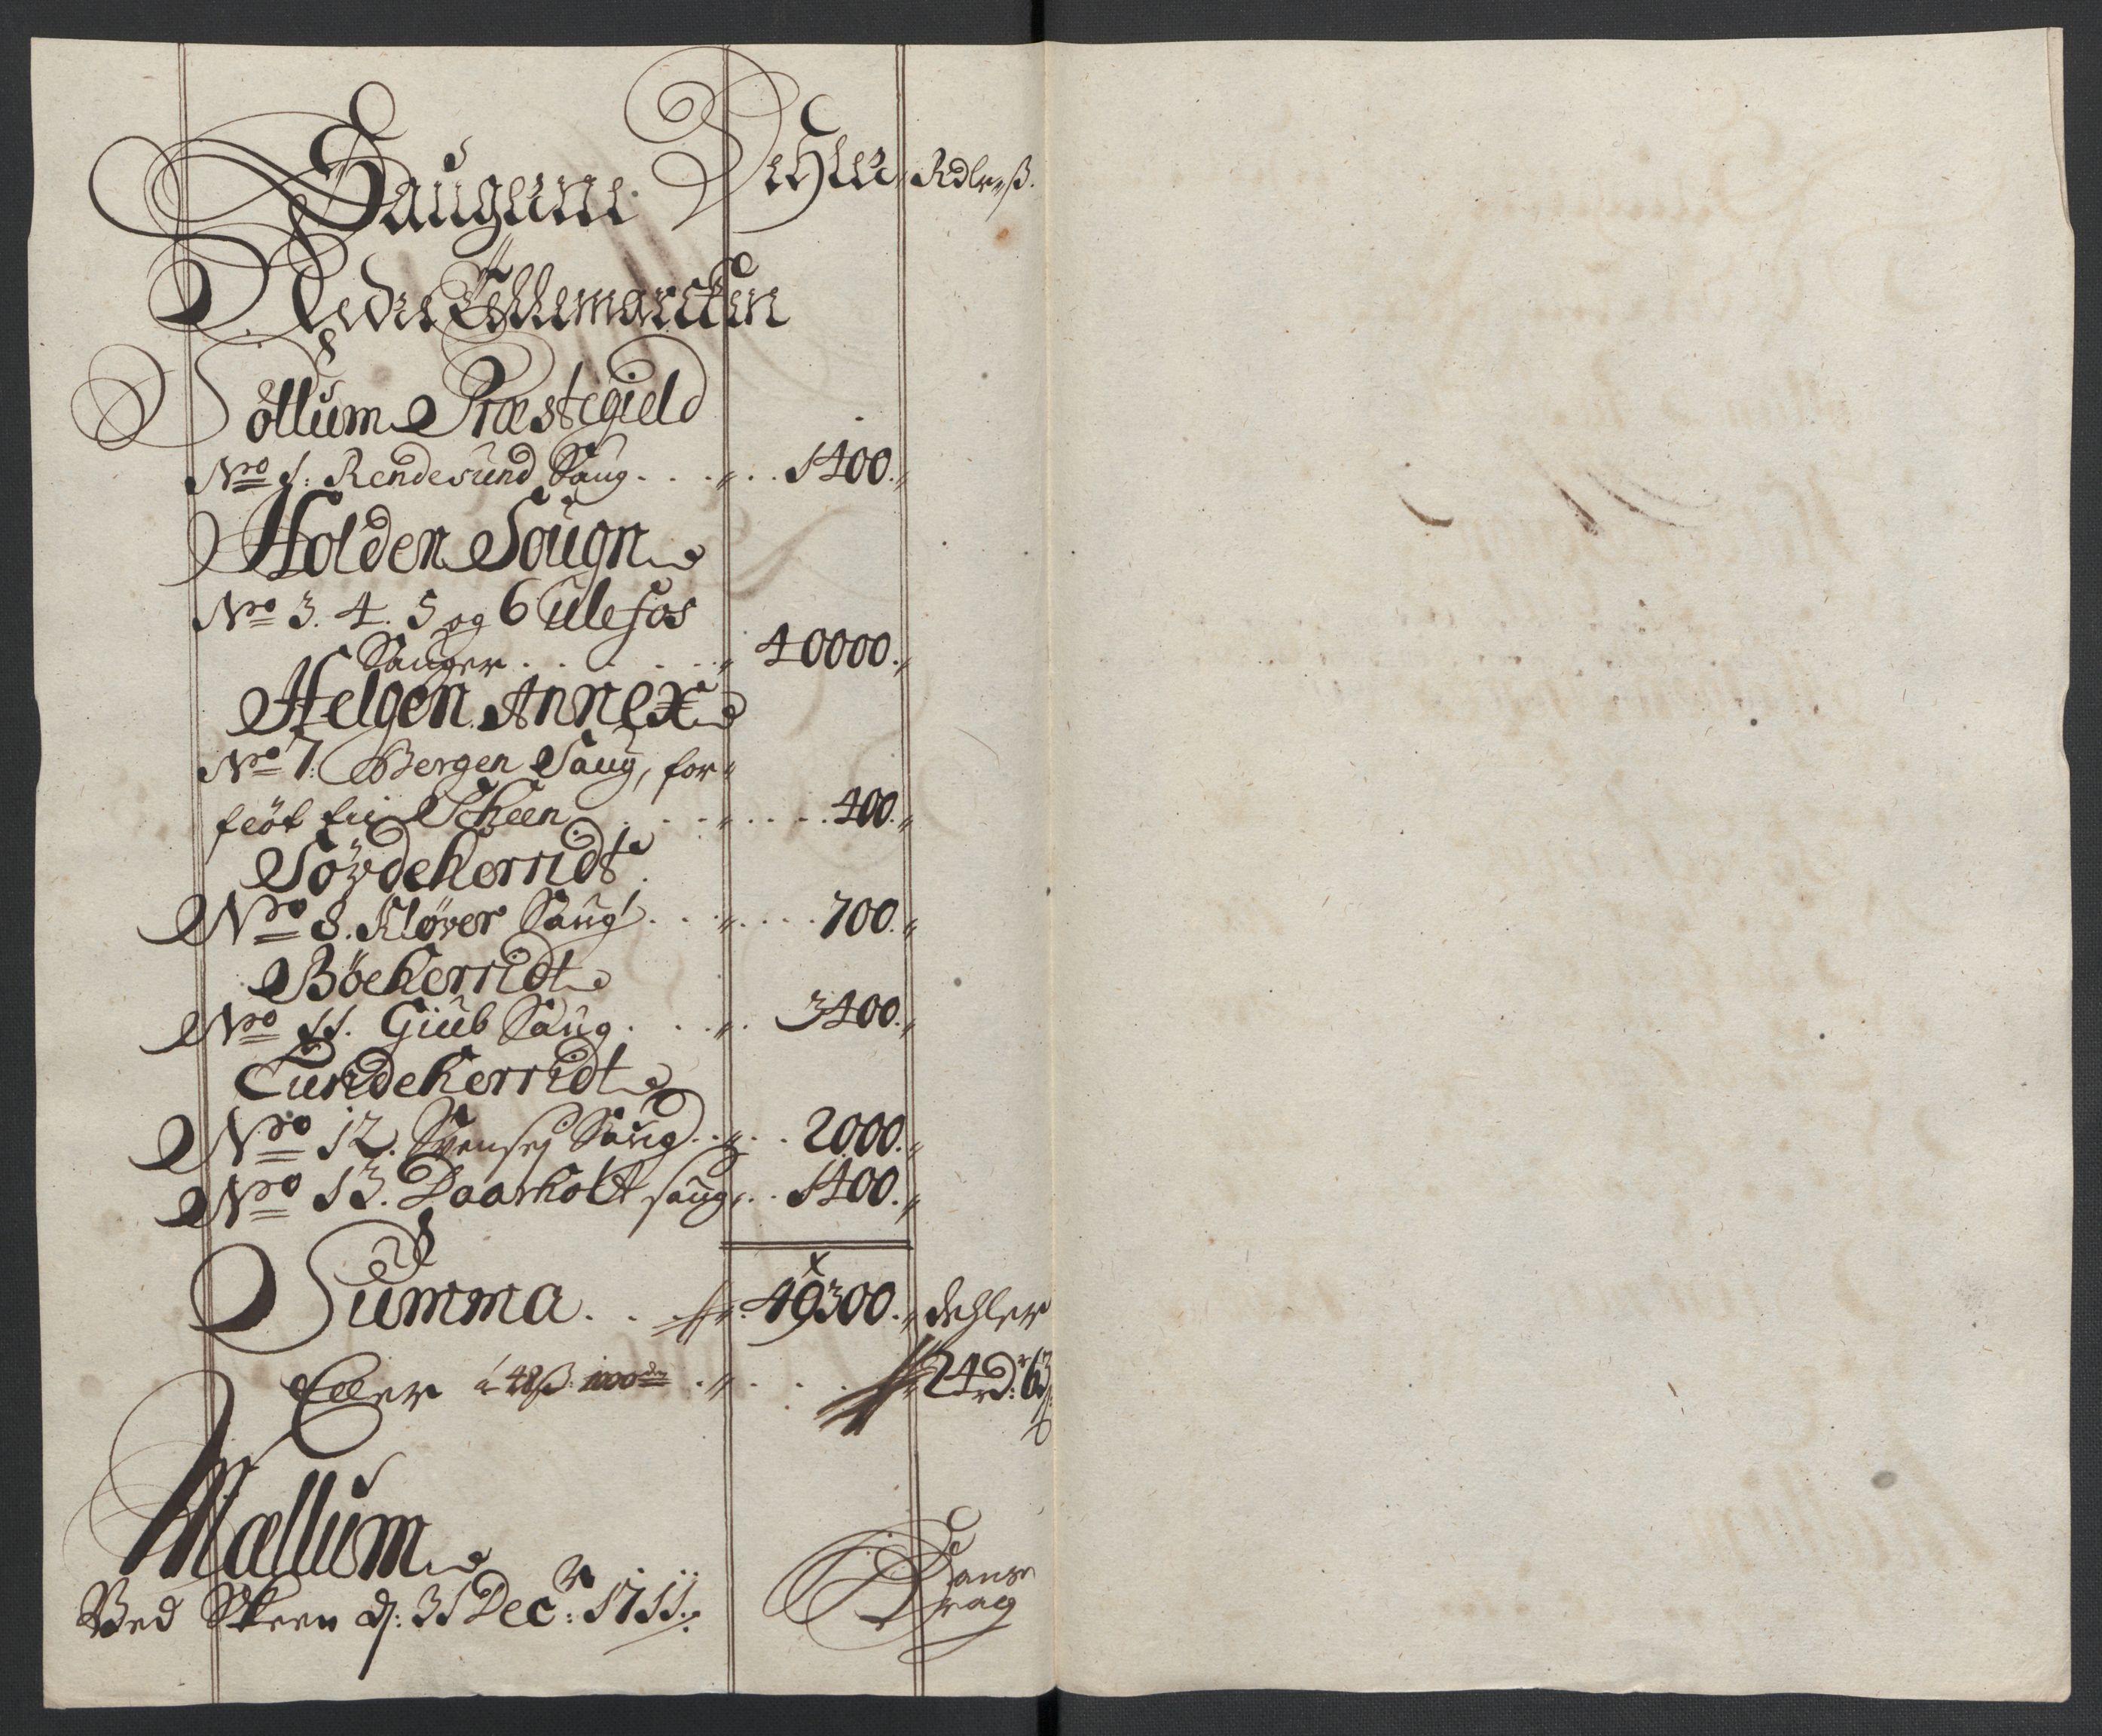 Saugene Dehler Rdlr ß.
Neder Tellemarcken
Söllum Præstegield
No 1. Rendesund Saug . . . 1400.
Holden Sougn
No 3. 4. 5 og 6 Ulefos
Sauger . . . . . 40000.
Helgen Annex
No 7. Bergen Saug, for-
fløt til Scheen . . . . . . 400.
Sövdeherridt
No 8. Kløver Saug . . . . . 700.
Böeherridt
No 11. Giüb Saug . . . . 3400.
Lundeherridt
No 12. Svensej Saug . . . 2000.
No 13. Daarholt saug . . 1400.
Summa . . . 49300. dehler
Eller à 48 ß 1000de . . . 24 rd: 63 ß
Mællum
Ved Skeen dj: 31 Decr: 1711.